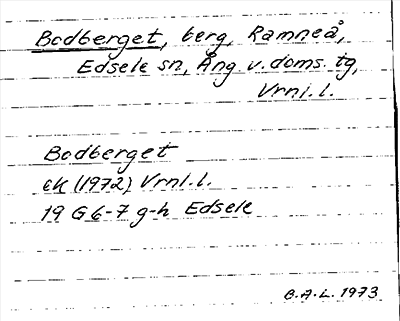 Bodberget, berg, Ramneå,
Edsele sn, Ång v. doms. tg,
Vrnl. l.
Bodberget
ek (1972) Vrnl. l.
19 G 6-7 g-h Edsele
B.A.L. 1973